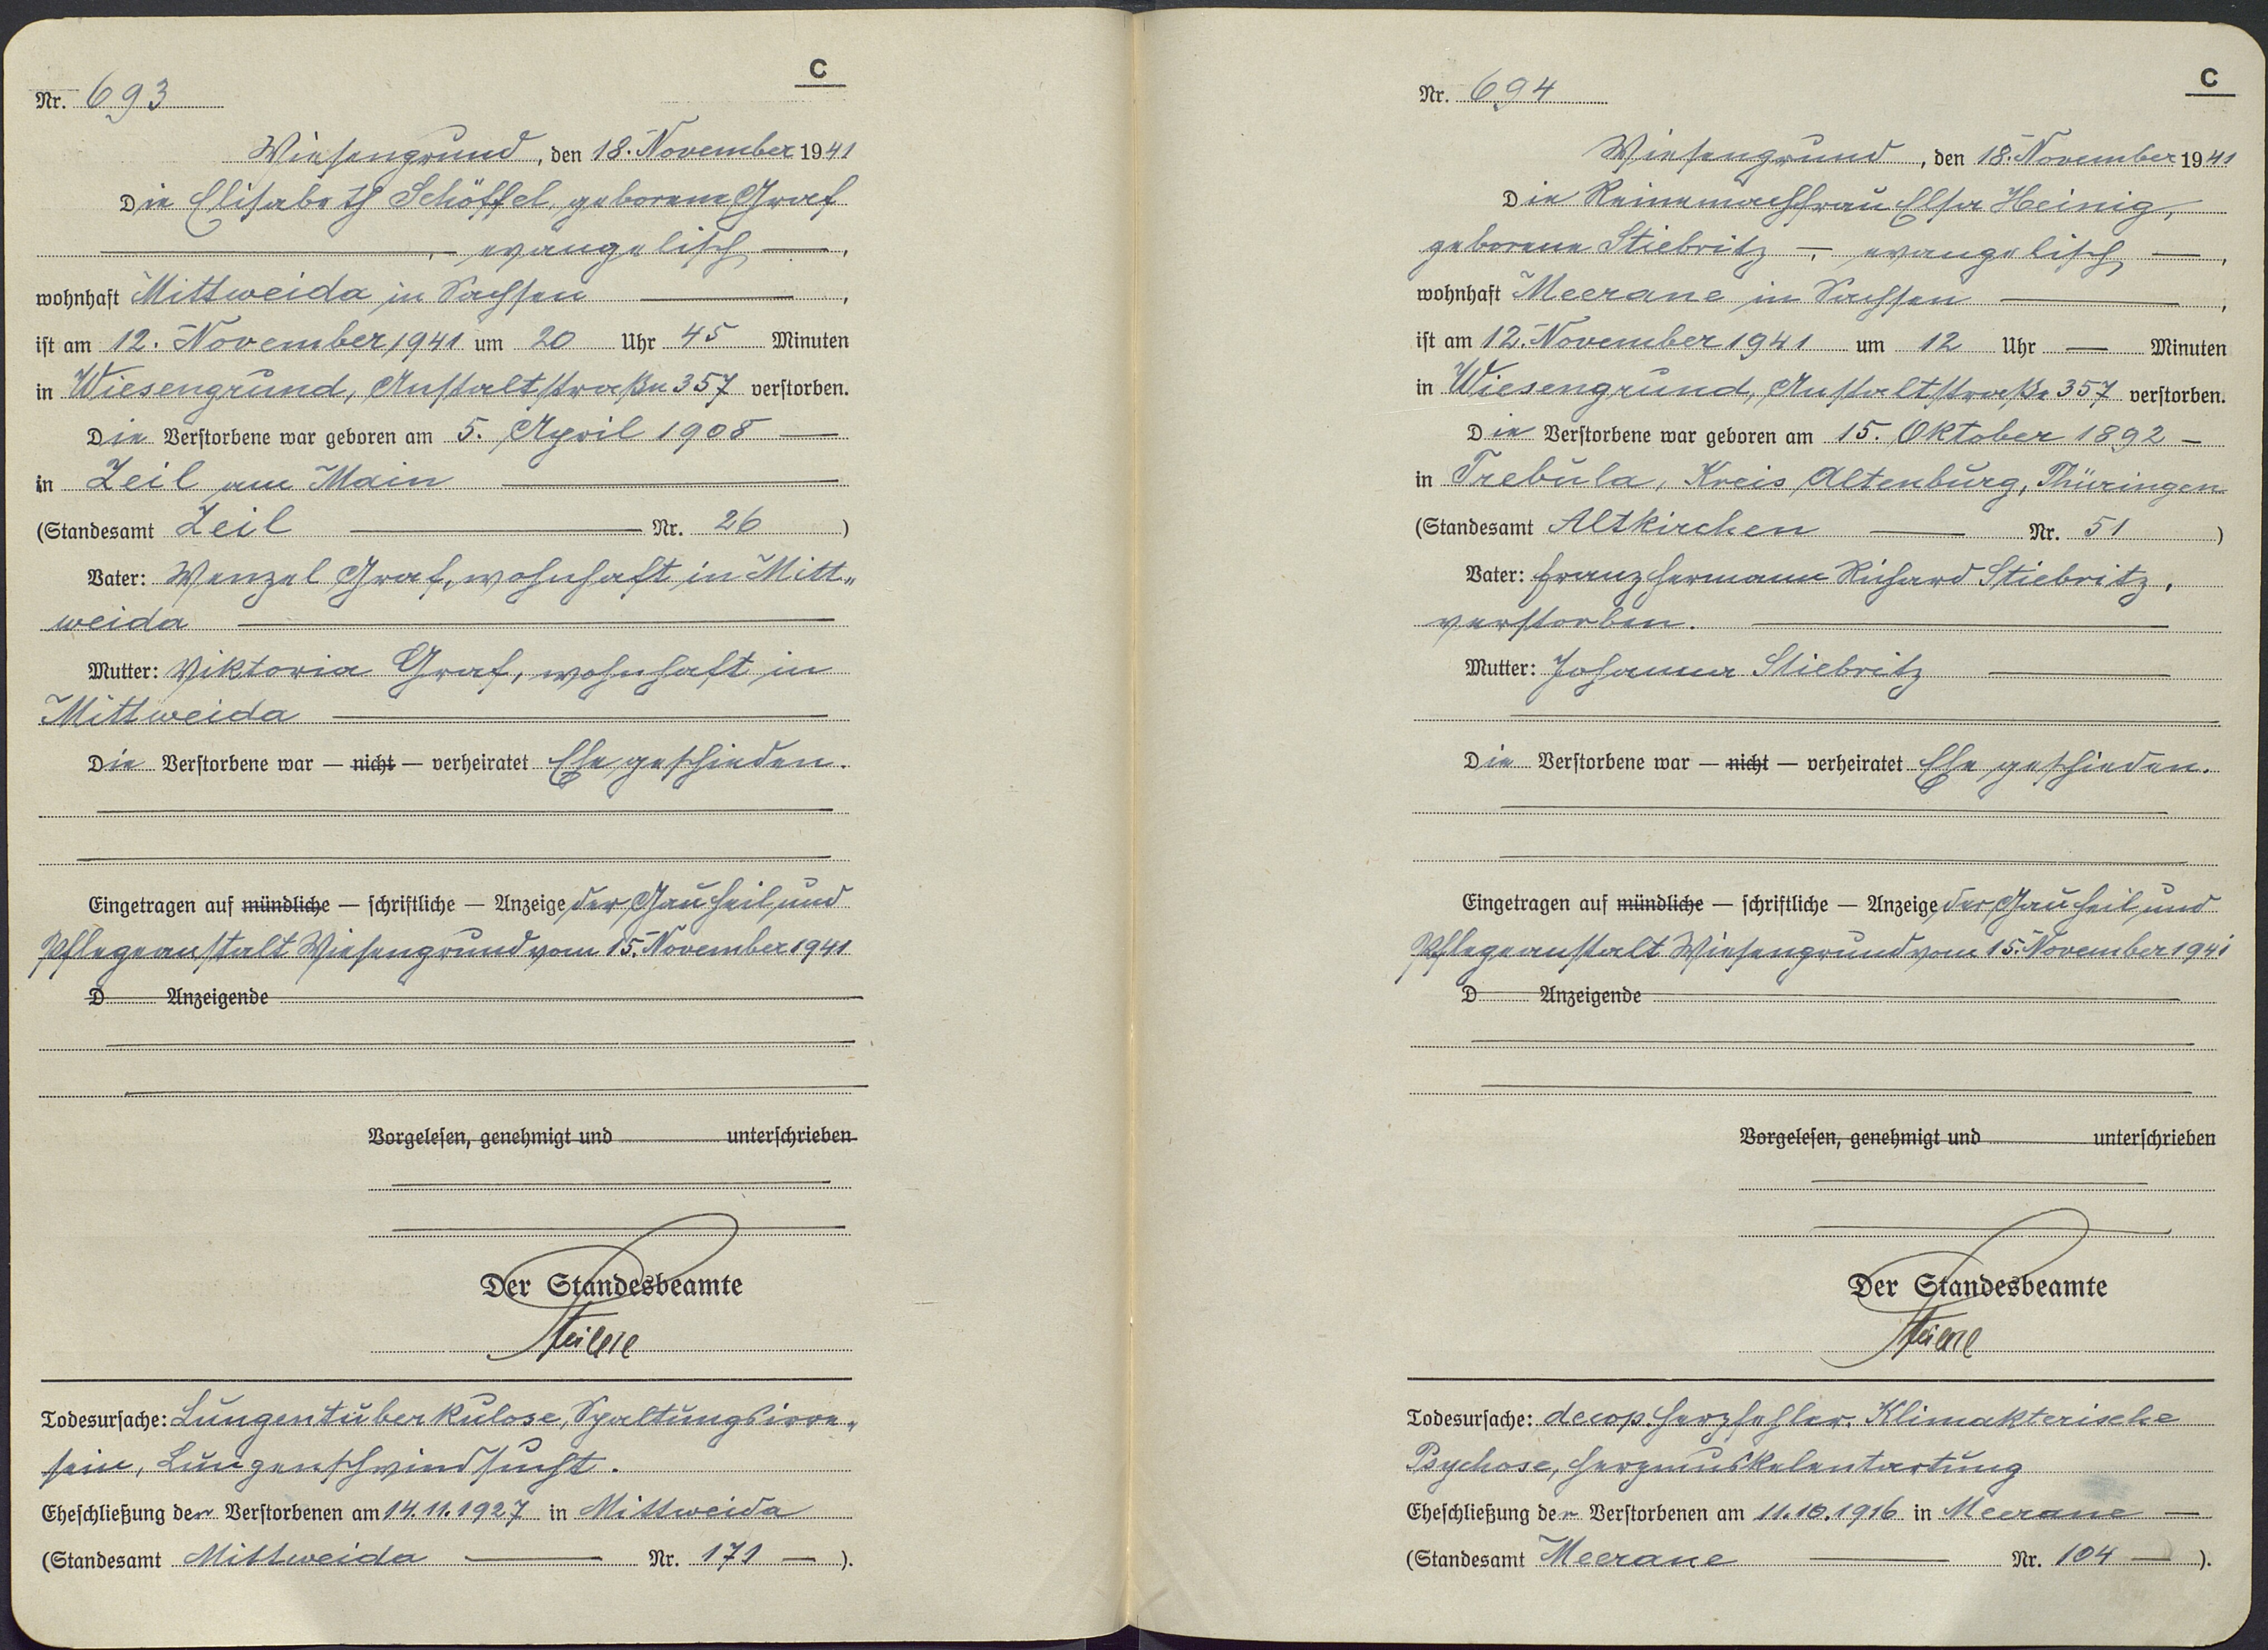 C
Nr. 693
Wiesengrund, den 18. November 1941
Die Elisabeth Schöffel, geborene Graf
—, evangelisch —,
wohnhaft Mittweida in Sachsen —,
ist am 12. November 1941 um 20 Uhr 45 Minuten
in Wiesengrund, Anstaltstraße 357 verstorben.
Die Verstorbene war geboren am 5. April 1908 —
in Zeil am Main —
(Standesamt Zeil — Nr. 26)
Vater: Wenzel Graf, wohnhaft in Mitt„
weida —
Mutter: Viktoria Graf, wohnhaft in
Mittweida —
Die Verstorbene war — nicht — verheiratet Ehe geschieden.
Eingetragen auf mündliche — schriftliche — Anzeige der Gau Heil und
Pflegeanstalt Wiesengrund vom 15. November 1941
D Anzeigende
Vorgelesen, genehmigt und unterschrieben
Der Standesbeamte
Todesursache: Lungentuberkulose, Spaltungsirre„
sein, Lungenschwindsucht.
Eheschließung der Verstorbenen am 14.11.1927 in Mittweida
(Standesamt Mittweida — Nr. 171 —).
C
Nr. 694
Wiesengrund, den 18. November 1941
Die Reinemachfrau Elsa Heinig,
geborene Stiebritz —, evangelisch —,
wohnhaft Meerane in Sachsen —,
ist am 12. November 1941 um 12 Uhr — Minuten
in Wiesengrund, Anstaltstraße 357 verstorben.
Die Verstorbene war geboren am 15. Oktober 1892 —
in Trebula, Kreis Altenburg, Thüringen
(Standesamt Altkirchen — Nr. 51)
Vater: Franz Hermann Richard Stiebritz,
verstorben. —
Mutter: Johanna Stiebritz —
Die Verstorbene war — nicht — verheiratet Ehe geschieden.
Eingetragen auf mündliche — schriftliche — Anzeige der Gau Heil und
Pflegeanstalt Wiesengrund vom 15. November 1941
D Anzeigende
Vorgelesen, genehmigt und unterschrieben
Der Standesbeamte
Todesursache: decop. Herzfehler. Klimakterische
Psychose, Herzmuskelentartung
Eheschließung der Verstorbenen am 11.10.1916 in Meerane —
(Standesamt Meerane — Nr. 104 —).